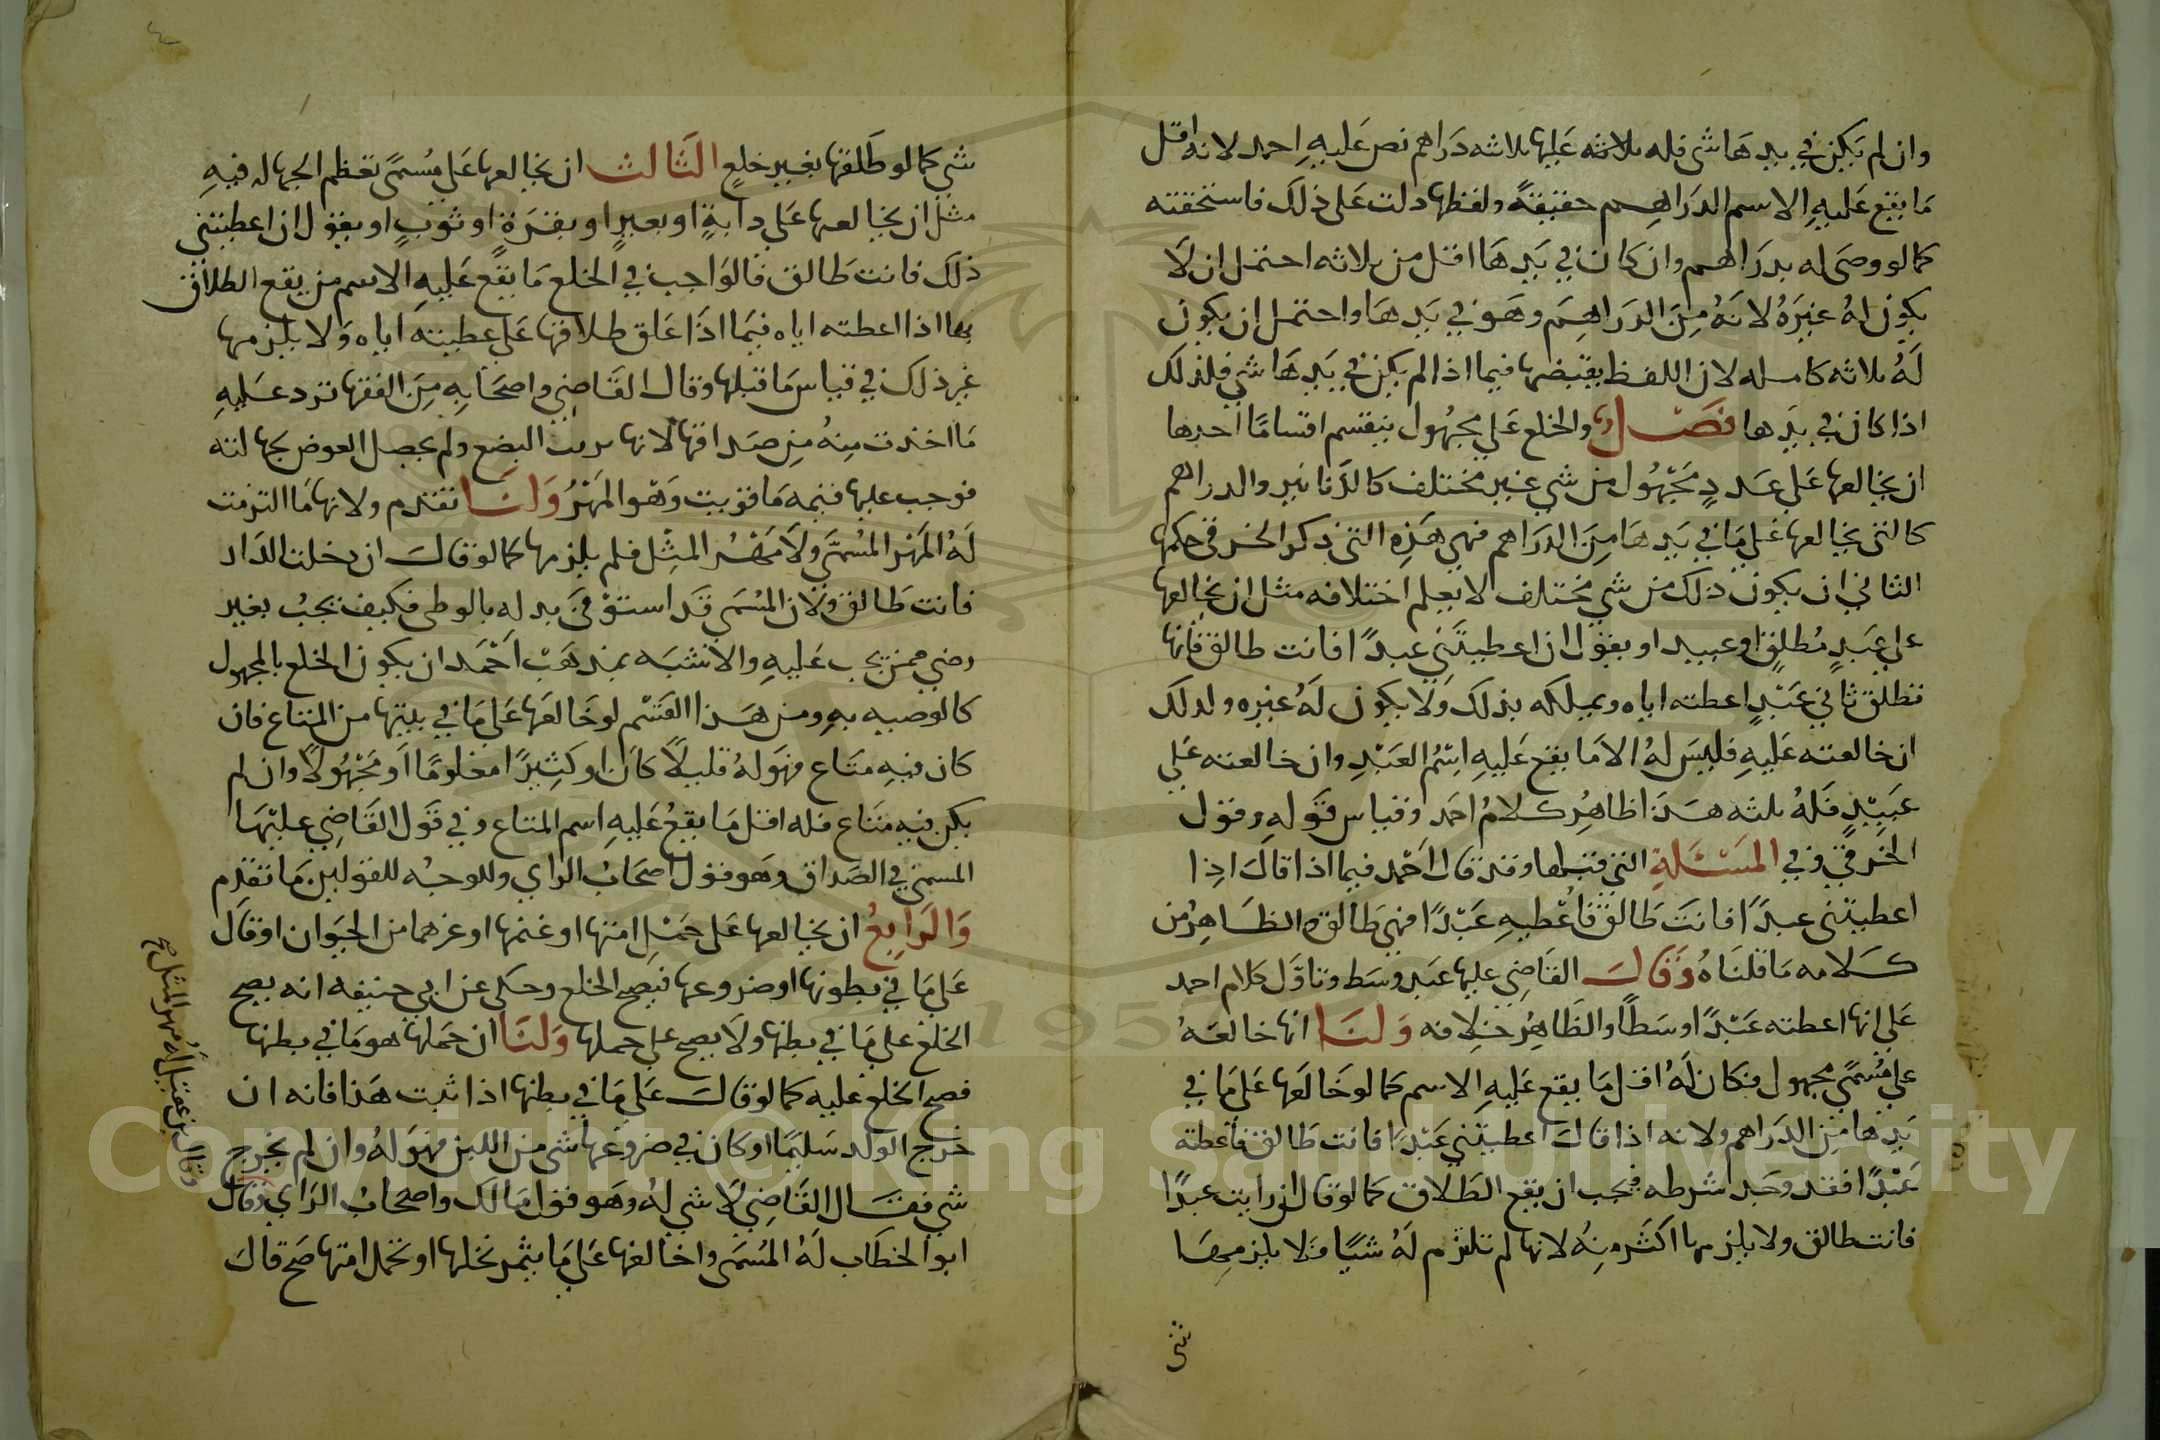 وان لم يكن في يدها شي فله ثلاثه عليها ثلاثه دراهم نص عليه احمد لانه اقل
ما يقع عليه الاسم الدراهم حقيقة ولفظها دلت على ذلك فاستحقته
كما لو وصى له بدراهم وان كان في يدها اقل من ثلاثه احتمل ان لا
يكون له غيره لانه من الدراهم وهو في يدها واحتمل ان يكون
له ثلاثه كامله لان اللفظ يقتضيها فيما اذا لم يكن في يدها شي فلذلك
اذا كان في يدها فصل والخلع على مجهول ينقسم اقساما احدها
ان يخالعها على عدد مجهول من شي غير مختلف كالدنانير والدراهم
كالتي يخالعها على ما في يدها من الدراهم فهي هذه التي ذكر الخرقي حكمها
الثاني ان يكون ذلك من شي مختلف لا يعلم اختلافه مثل ان يخالعها
على عبد مطلق او عبيد او يقول ان اعطيتني عبدا فانت طالق فانها
تطلق ثاني عبد اعطته اياه ويملكه بذلك ولا يكون له غيره ولذلك
ان خالعته عليه فليس له الا ما يقع عليه اسم العبد وان خالعته على
عبيد فله ثلثه هذا ظاهر كلام احمد وقياس قوله وقول
الخرقي وفي المسئلة التي قبلها وقد قال احمد فيما اذا قال اذا
اعطيتني عبدا فانت طالق فاعطيه عبدا فهي طالق والظاهر من
كلامه ما قلناه وقال القاضي عليها عبد وسط وتاول كلام احمد
على انها اعطته عبدا اوسطا والظاهر خلافه ولنا انها خالعه
على مسمى مجهول فكان له اقل ما يقع عليه الاسم كما لو خالعها على ما في
يدها من الدراهم ولانه اذا قال اعطيتني عبدا فانت طالق فاعطته
عبدا فقد وجد شرطه فيجب ان يقع الطلاق كما لو قال ان رايت عبدا
فانت طالق ولا يلزمها اكثر منه لانها لم تلتزم له شيا فلا يلزمها
شي
شي كما لو طلقها بغير خلع الثالث ان يخالعها على مسمى تعظم الجهاله فيه
مثل ان يخالعها على دابة او بعير او بقرة او ثوب او يقول ان اعطيتني
ذلك فانت طالق فالواجب في الخلع ما يقع عليه الاسم من يقع الطلاق
بها اذا اعطته اياه فيما اذا علق طلاقها على عطيته اياه ولا يلزمها
غير ذلك في قياس ما قبلها وقال القاضي واصحابه من الفقها ترد عليه
ما اخذت منه من صداقها لانها البضع ولم يحصل العوض بجهالته
فوجب عليها قيمه ما فوتت وهو المهر ولنا تقدم ولانها ما التزمت
له المهر المسمى ولا مهر المثل فلم يلزمها كما لو قال ان دخلت الدار
فانت طالق ولان المسمى قد استوفى بدله بالوطي فكيف يجب بغير
رضي ممن يجب عليه والاشبه بمذهب احمد ان يكون الخلع بالمجهول
كالوصيه به ومن هذا القسم لو خالعها على ما في بيتها من المتاع فان
كان فيه متاع فهو له قليلا كان او كثيرا معلوما او مجهولا وان لم
يكن فيه متاع فله اقل ما يقع عليه اسم المتاع وفي قول القاضي عليها
المسمى في الصداق وهو قول اصحاب الراي وللوجه للقولين ما تقدم
والرابع ان يخالعها على حمل امتها او غنمها او غيرهما من الحيوان او قال
على ما في بطونها او ضروعها فيصح الخلع وحكى عن ابي حنيفه انه يصح
الخلع على ما في بطنها ولا يصح على حملها ولنا ان حملها هو ما في بطنها
فصح الخلع عليه كما لو قال على ما في بطنها اذا ثبت هذا فانه ان
خرج الولد سليما او كان في ضروعها شي من اللبن فهو له وان لم يخرج
شي فقال القاضي لا شي له وهو قول مالك واصحاب الراي وقال
ابو الخطاب له المسمى واخالعها على ما يثمر نخلها او تحمل امتها صح قال
وقال ابن عقيل له مهر المثل صح
Copyright © King Saud University
195